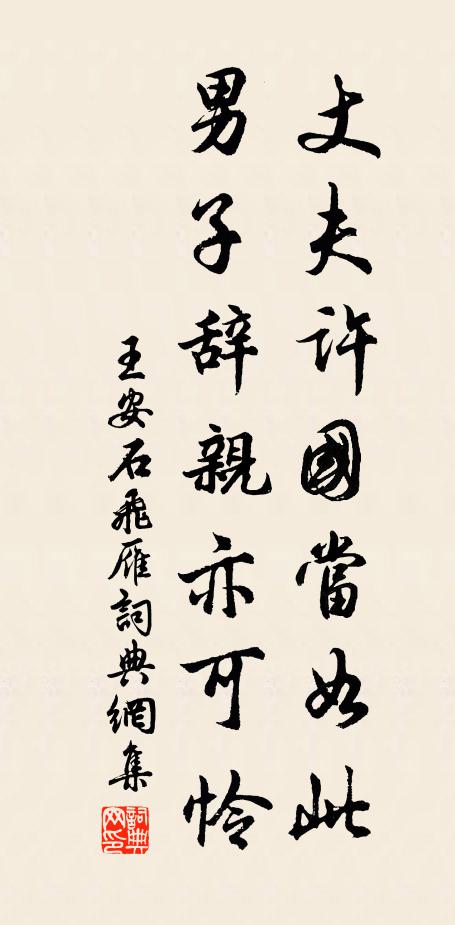 丈夫許國當如此
男子辞親亦可怜
王安石飛雁詞典網集
詞典网印